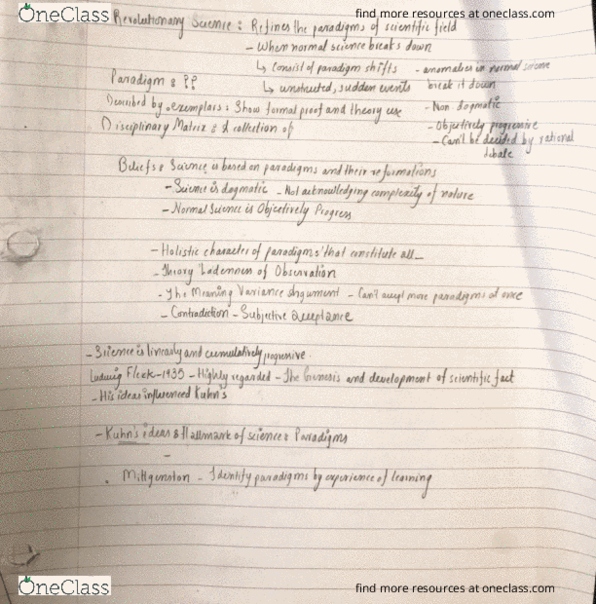 OneClass
find more resources at oneclass.com
Revolutionary Science : Refines the paradigms of scientific field
- When normal science breaks down
↳ Consist of paradigm shifts - anomalies in normal science
break it down
Paradigm : P?
↳ unstructed, sudden events
Described by exemplars : Show formal proof and theory use
- Non dogmatic
Disciplinary Matrix : A collection of
- Objectively progressive
- Can't be decided by rational
debate
Beliefs : Science is based on paradigms and their reformations
- Science is dogmatic - Not acknowledging complexity of nature
- Normal Science is Objectively Progress
- Holistic character of paradigms that constitute all
- Theory Ladenness of Observation
- The Meaning Variance Argument - Can't accept more paradigms at once
- Contradiction - Subjective acceptance
- Science is linearly and cumulatively progressive.
Ludwig Fleck - 1935 - Highly regarded - The Genesis and development of scientific fact
- His ideas influenced Kuhn's
- Kuhn's ideas : Hallmark of science : Paradigms
-
. Mittgenston - Identify paradigms by experience of learning
OneClass
find more resources at oneclass.com